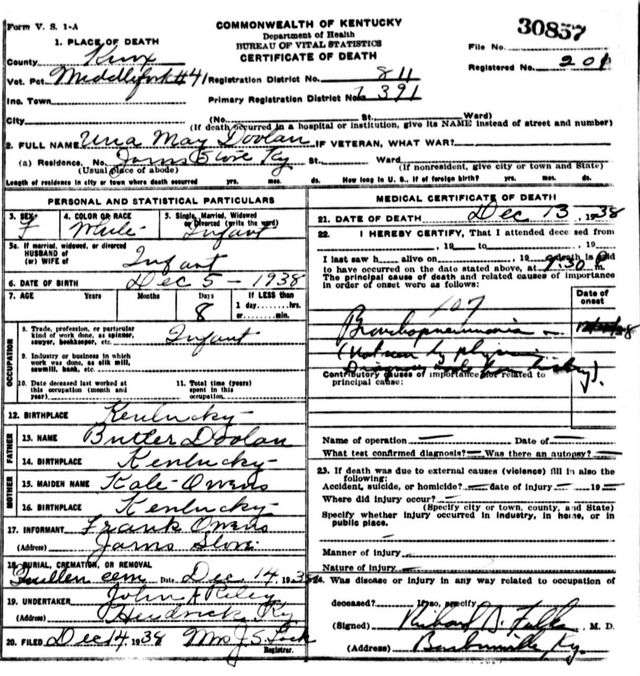 Form V. S. 1-A
COMMONWEALTH OF KENTUCKY
Department of Health
BUREAU OF VITAL STATISTICS
CERTIFICATE OF DEATH
30857
File No.
Registered No. 201
1. PLACE OF DEATH
County Knox
Vot. Pct. Middlefork #41 Registration District No. 811
Inc. Town Primary Registration District No. 7391
City (No. St. Ward)
(If death occurred in a hospital or institution, give its NAME instead of street and number)
2. FULL NAME Una May Doolan IF VETERAN, WHAT WAR?
(a) Residence. No. Ky St. Ward
(Usual place of abode) (If nonresident, give city or town and State)
Length of residence in city or town where death occurred yrs. mos. ds. How long in U. S., if of foreign birth? yrs. mos. ds.
PERSONAL AND STATISTICAL PARTICULARS
3. SEX F
4. COLOR OR RACE
5. Single, Married, Widowed or Divorced (write the word) Infant
5a. If married, widowed, or divorced
HUSBAND OF
(or) WIFE of Infant
6. DATE OF BIRTH Dec 5 - 1938
7. AGE Years Months Days 8 If LESS than
1 day.....hrs.
or.....min.
OCCUPATION
8. Trade, profession, or particular
kind of work done, as spinner,
sawyer, bookkeeper, etc. Infant
9. Industry or business in which
work was done, as silk mill,
sawmill, bank, etc.
10. Date deceased last worked at
this occupation (month and
year)
11. Total time (years)
spent in this
occupation
12. BIRTHPLACE Kentucky
FATHER
13. NAME Butler Doolan
14. BIRTHPLACE Kentucky
MOTHER
15. MAIDEN NAME Kate Owens
16. BIRTHPLACE Kentucky
17. INFORMANT Frank Owens
(Address)
18. BURIAL, CREMATION, OR REMOVAL
cem Date Dec 14, 1938
19. UNDERTAKER John A Riley
(Address) Ky
20. FILED Dec 14 1938 Mrs J. S.
MEDICAL CERTIFICATE OF DEATH
21. DATE OF DEATH Dec 13, 1938
22. I HEREBY CERTIFY, That I attended deceased from
, 19 to , 19
I last saw h alive on , 19 death is said
to have occurred on the date stated above, at 9:30 m
The principal cause of death and related causes of importance
in order of onset were as follows:
Date of
onset
107
Bronchopneumonia
(Not seen by physician
Contributory causes of importance not related to
principal cause:
Name of operation Date of
What test confirmed diagnosis? Was there an autopsy?
23. If death was due to external causes (violence) fill in also the
following:
Accident, suicide, or homicide? date of injury 19
Where did injury occur?
(Specify city or town, county, and State)
Specify whether injury occurred in industry, in home, or in
public place.
Manner of injury
Nature of injury
24. Was disease or injury in any way related to occupation of
deceased? If so, specify
(Signed) Richard D. M. D.
(Address) Barbourville Ky.